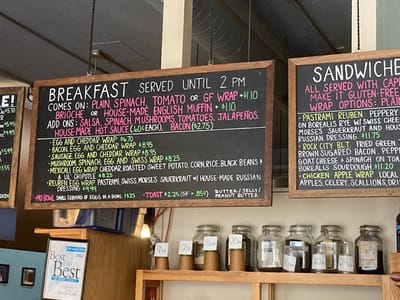 BREAKFAST SERVED UNTIL 2 PM
COMES ON: PLAIN, SPINACH, TOMATO OR GF WRAP •$1.10
BRIOCHE OR HOUSE-MADE ENGLISH MUFFIN • $1.10
ADD ONS: SALSA, SPINACH, MUSHROOMS, TOMATOES, JALAPEÑOS.
HOUSE-MADE HOT SAUCE (60¢ EACH), BACON ($2.75)
• EGG AND CHEDDAR WRAP $6.70
BACON, EGG AND CHEDDAR WRAP • $8.95
• SAUSAGE, EGG AND CHEDDAR • $8.95
• MUSHROOM, SPINACH, EGG AND SWISS WRAP • $8.25
• MEXICALI WRAP EGG, CHEDDAR, ROASTED SWEET POTATO, CORN, RICE, BLACK BEANS &
A LIL' CHIPOTLE • $8.25
• REUBEN EGG WRAP PASTRAMI, SWISS, MORSE'S SAUERKRAUT W/ HOUSE-MADE RUSSIAN
DRESSING • $9.99
SMALL SERVING OF EGGS IN A BOWL
•TOAST •$2.25
BUTTER/JELLY/
PEANUT BUTTER
SANDWICHE
ALL SERVED WITH CAP
MAKE IT GLUTEN-FREE
WRAP OPTIONS: PLAI
• PASTRAMI REUBEN PEPPERY
ON BOREALIS RYE W/ SWISS CHEE
MORSE'S SAUERKRAUT AND HOUS
RUSSIAN DRESSING $11.75
• ROCK CITY BLT FRIED GREEN
BROWN SUGARED BACON, PEPPE
GOAT CHEESE & SPINACH ON TOA
BOREALIS SOURDOUGH • $11.20
• CHICKEN APPLE WRAP LOCAL
APPLES, CELERY, SCALLIONS, OR
Best
of the
Best